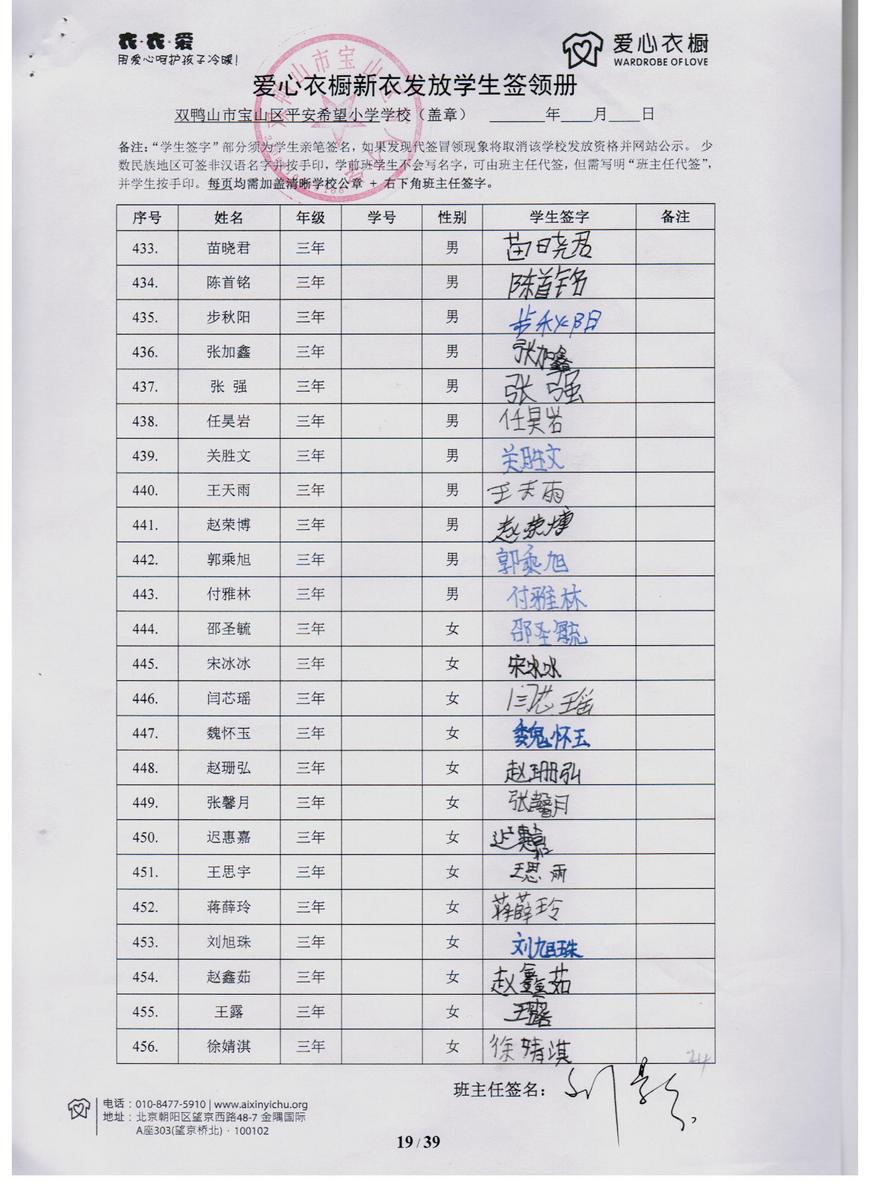 衣·衣·爱
用爱心呵护孩子冷暖!
爱心衣橱
WARDROBE OF LOVE
爱心衣橱新衣发放学生签领册
双鸭山市宝山区平安希望小学学校（盖章） ______年____月____日
备注：“学生签字”部分须为学生亲笔签名，如果发现代签冒领现象将取消该学校发放资格并网站公示。 少
数民族地区可签非汉语名字并按手印，学前班学生不会写名字，可由班主任代签，但需写明“班主任代签”，
并学生按手印。每页均需加盖清晰学校公章 + 右下角班主任签字。
序号 姓名 年级 学号 性别 学生签字 备注
433. 苗晓君 三年 男 苗晓君
434. 陈首铭 三年 男 陈首铭
435. 步秋阳 三年 男 步秋阳
436. 张加鑫 三年 男 张加鑫
437. 张 强 三年 男 张 强
438. 任昊岩 三年 男 任昊岩
439. 关胜文 三年 男 关胜文
440. 王天雨 三年 男 王天雨
441. 赵荣博 三年 男 赵荣博
442. 郭乘旭 三年 男 郭乘旭
443. 付雅林 三年 男 付雅林
444. 邵圣毓 三年 女 邵圣毓
445. 宋冰冰 三年 女 宋冰冰
446. 闫芯瑶 三年 女 闫芯瑶
447. 魏怀玉 三年 女 魏怀玉
448. 赵珊弘 三年 女 赵珊弘
449. 张馨月 三年 女 张馨月
450. 迟惠嘉 三年 女 迟惠嘉
451. 王思宇 三年 女 王思雨
452. 蒋薛玲 三年 女 蒋薛玲
453. 刘旭珠 三年 女 刘旭珠
454. 赵鑫茹 三年 女 赵鑫茹
455. 王露 三年 女 王露
456. 徐婧淇 三年 女 徐婧淇
班主任签名：
电话：010-8477-5910 | www.aixinyichu.org
地址：北京朝阳区望京西路48-7 金隅国际
A座303(望京桥北) · 100102
19 / 39